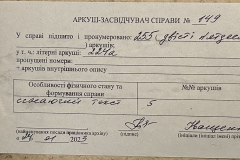 АРКУШ-ЗАСВІДЧУВАЧ СПРАВИ № 149
У справі підшито і пронумеровано: 255 двісті
аркушів;
у т.ч.: літерні аркуші: 224а
пропущені номери:
+ аркушів внутрішнього опису
Особливості фізичного стану та формування справи №№ аркушів
згасаючий текст 5
(найменування посади працівника архіву)
01 2023